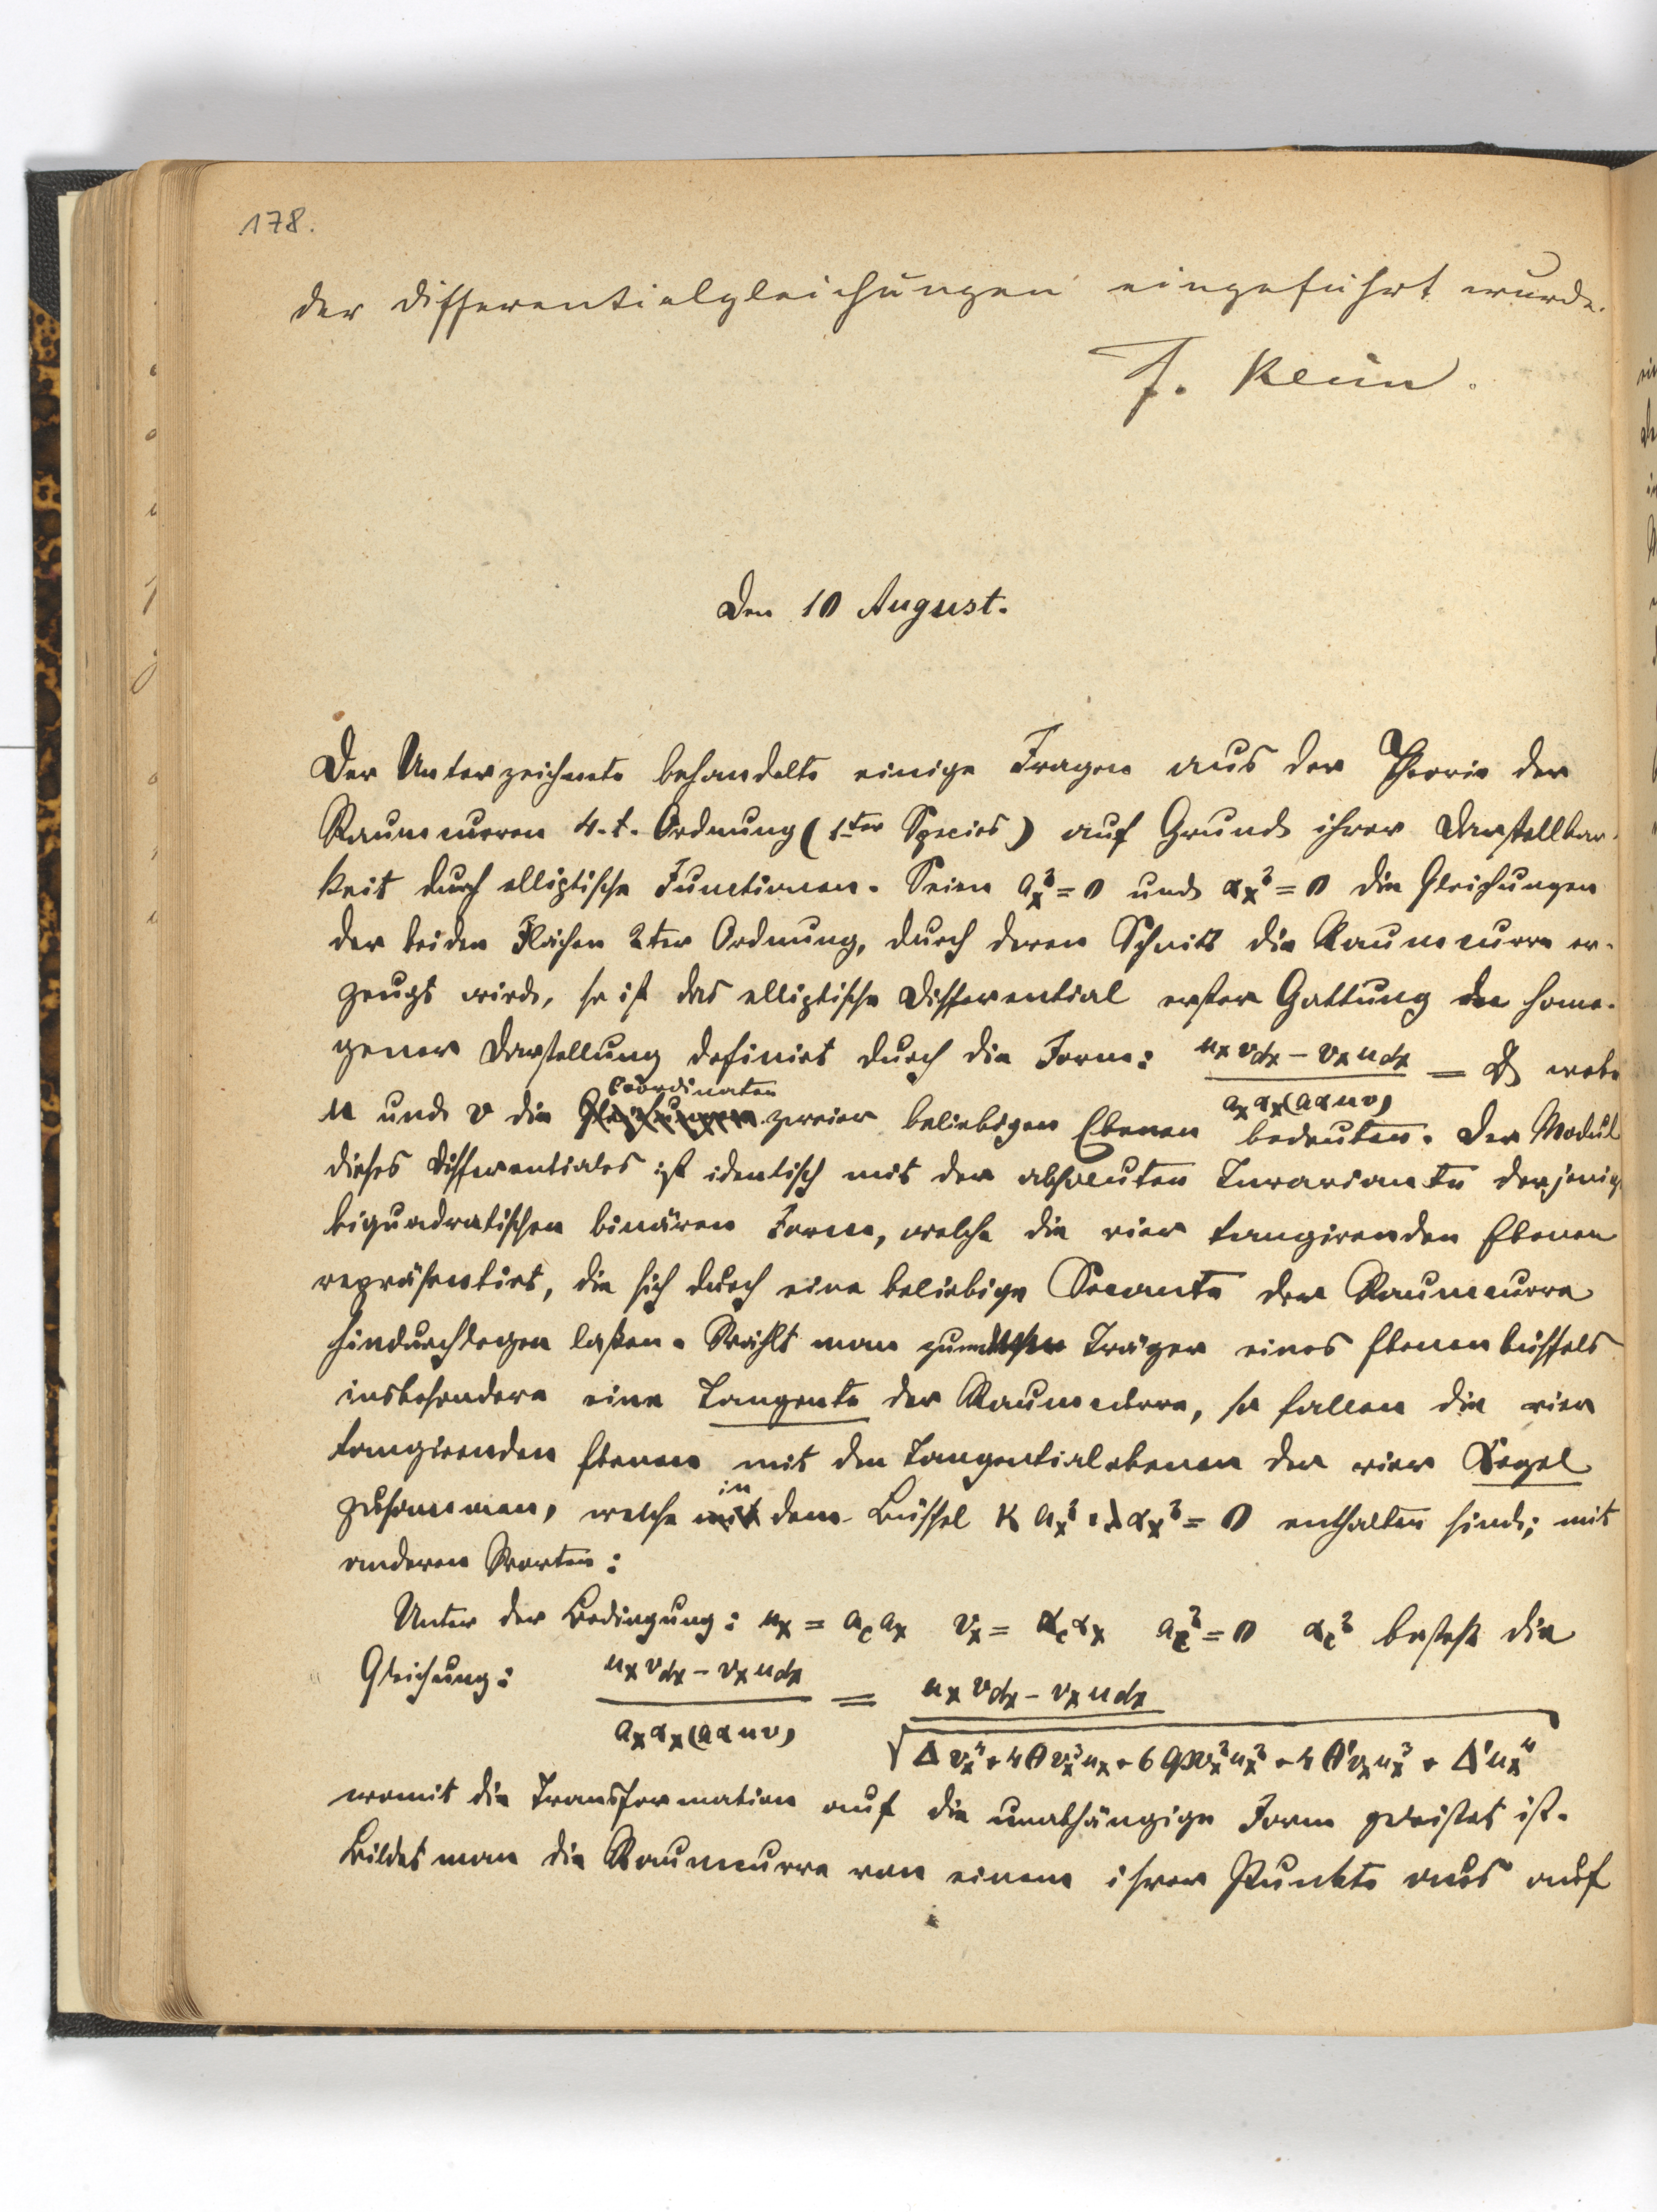 178.
der Differentialgleichungen eingeführt wurde.
F. Klein.
Den 10 August.
Der Unterzeichnete behandelte einige Fragen aus der Theorie der
Raumcurven 4-t. Ordnung (1ter Species) auf Grund ihrer Darstellbar-
keit durch elliptische Functionen. Seien a_x^2 = 0 und α_x^2 = 0 die Gleichungen
der beiden Flächen 2ter Ordnung, durch deren Schnitt die Raumcurve er-
zeugt wird, so ist das elliptische Differential erster Gattung in homo-
gener Darstellung definirt durch die Form: (u_x v_dx - v_x u_dx) / (a_x α_x (a α u v)) = wobei
u und v die Coordinaten zweier beliebigen Ebenen bedeuten. Der Modul
dieses Differentiales ist identisch mit der absoluten Invariante derjenig
biquadratischen binären Form, welche die vier tangirenden Ebenen
repräsentirt, die sich durch eine beliebige Secante der Raumcurve
hindurchlegen laßen. Wählt man zum Träger eines Ebenenbüschels
insbesondere eine Tangente der Raumcurve, so fallen die vier
tangirenden Ebenen mit den Tangentialebenen der vier Kegel
zusammen, welche in dem Büschel κ a_x^2 + λ α_x^2 = 0 enthalten sind; mit
anderen Worten:
Unter der Bedingung: u_x = a_c a_x v_x = α_c α_x a_c^2 = 0 α_c^2 besteht die
Gleichung: (u_x v_dx - v_x u_dx) / (a_x α_x (a α u v)) = (u_x v_dx - v_x u_dx) / √(Δ v_x^4 + 4 Θ v_x^3 u_x + 6 φ v_x^2 u_x^2 + 4 Θ' v_x u_x^3 + Δ' u_x^4)
womit die Transformation auf die unabhängige Form geleistet ist.
Bildet man die Raumcurve von einem ihrer Punkte aus auf